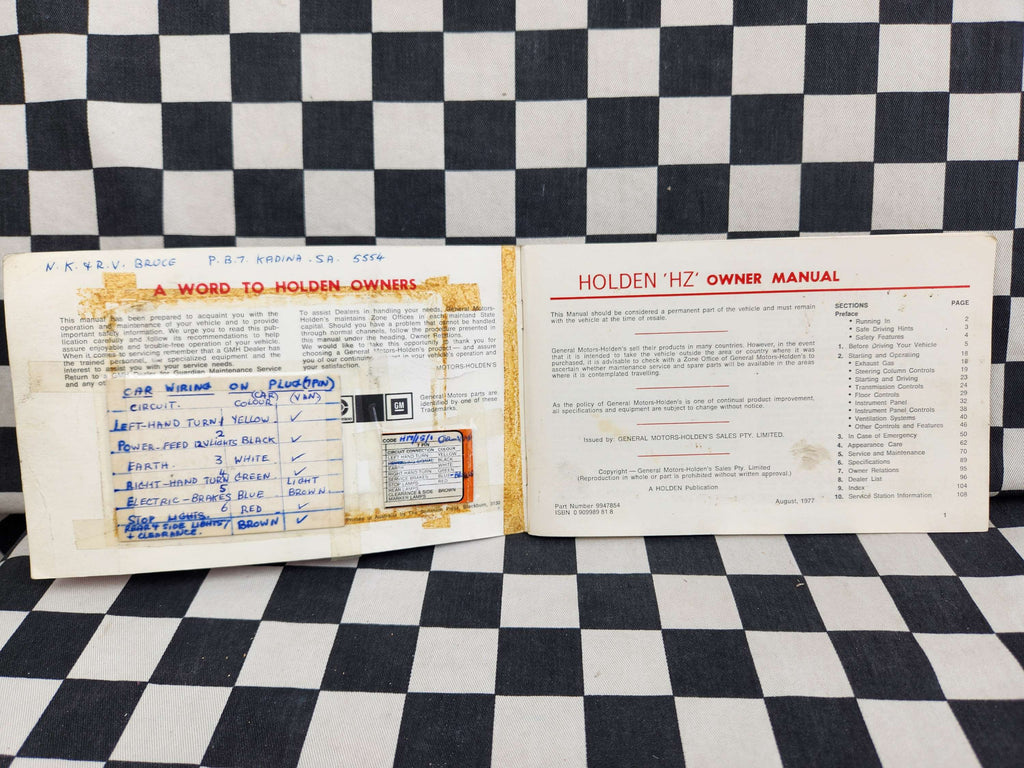 N. K. & R.V. BRUCE P.B.7. KADINA. SA. 5554
A WORD TO HOLDEN OWNERS
This manual has been prepared to acquaint you with the
operation and maintenance of your vehicle and to provide
important safety information. We urge you to read this pub-
lication carefully and follow its recommendations to help
assure enjoyable and trouble-free operation of your vehicle.
When it comes to servicing remember that a GMH Dealer has
the trained personnel, the specialized equipment and the
interest to assist you with your service needs.
Return to a GMH Dealer for Guardian Maintenance Service
and any
To assist Dealers in handling your needs, General Motors-
Holden's maintains Zone Offices in each mainland State
capital. Should you have a problem that cannot be handled
through normal channels, follow the procedure presented in
this manual under the heading, Owner Relations.
We would like to take this opportunity to thank you for
choosing a General Motors-Holden's product — and assure
you of our continuing in your vehicle's operation and
your satisfaction.
MOTORS-HOLDEN'S
General Motors parts are
identified by one of these
Trademarks.
GM
CAR WIRING ON PLUG (7PIN)
CIRCUIT. (CAR) COLOUR (VAN)
LEFT-HAND TURN 1 YELLOW ✓
POWER-FEED 12V LIGHTS 2 BLACK ✓
EARTH. 3 WHITE ✓
RIGHT-HAND TURN 4 GREEN ✓
ELECTRIC-BRAKES 5 BLUE LIGHT BROWN.
STOP LIGHTS. 6 RED ✓
REAR & SIDE LIGHTS / + CLEARANCE. BROWN ✓
CODE
7 PIN
CIRCUIT CONNECTION COLOUR
LEFT HAND TURN YELLOW
BLACK
WHITE
RIGHT HAND TURN GREEN
SERVICE BRAKES
STOP LAMPS RED
REAR LAMPS
CLEARANCE & SIDE BROWN
MARKER LAMPS
in Australia by The Dominion Press, Blackburn, 3130
HOLDEN 'HZ' OWNER MANUAL
This Manual should be considered a permanent part of the vehicle and must remain
with the vehicle at the time of resale.
General Motors-Holden's sell their products in many countries. However, in the event
that it is intended to take the vehicle outside the area or country where it was
purchased, it is advisable to check with a Zone Office of General Motors-Holden's to
ascertain whether maintenance and spare parts will be available in the areas
where it is contemplated travelling.
As the policy of General Motors-Holden's is one of continual product improvement,
all specifications and equipment are subject to change without notice.
Issued by: GENERAL MOTORS-HOLDEN'S SALES PTY. LIMITED.
Copyright — General Motors-Holden's Sales Pty. Limited
(Reproduction in whole or part is prohibited without written approval.)
A HOLDEN Publication
Part Number 9947854 August, 1977
ISBN 0 909989 81 8
SECTIONS PAGE
Preface
• Running In 2
• Safe Driving Hints 3
• Safety Features 4
1. Before Driving Your Vehicle 5
2. Starting and Operating 18
• Exhaust Gas 18
• Steering Column Controls 19
• Starting and Driving 23
• Transmission Controls 24
• Floor Controls 29
• Instrument Panel 32
• Instrument Panel Controls 38
• Ventilation Systems 40
• Other Controls and Features 46
3. In Case of Emergency 50
4. Appearance Care 62
5. Service and Maintenance 70
6. Specifications 89
7. Owner Relations 95
8. Dealer List 96
9. Index 104
10. Service Station Information 108
1